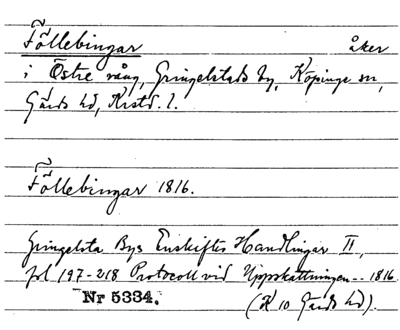 Föllebingar åker
i Östre vång, Gringelstads by, Köpinge sn,
Gärds hd, Krstd. l.
Föllebingar 1816.
Gringelsta Bys Enskiftes Handlingar II,
fol 197-218 Protocoll vid Uppskattningen -- 1816
Nr 5334. (K 10 Gärds hd).